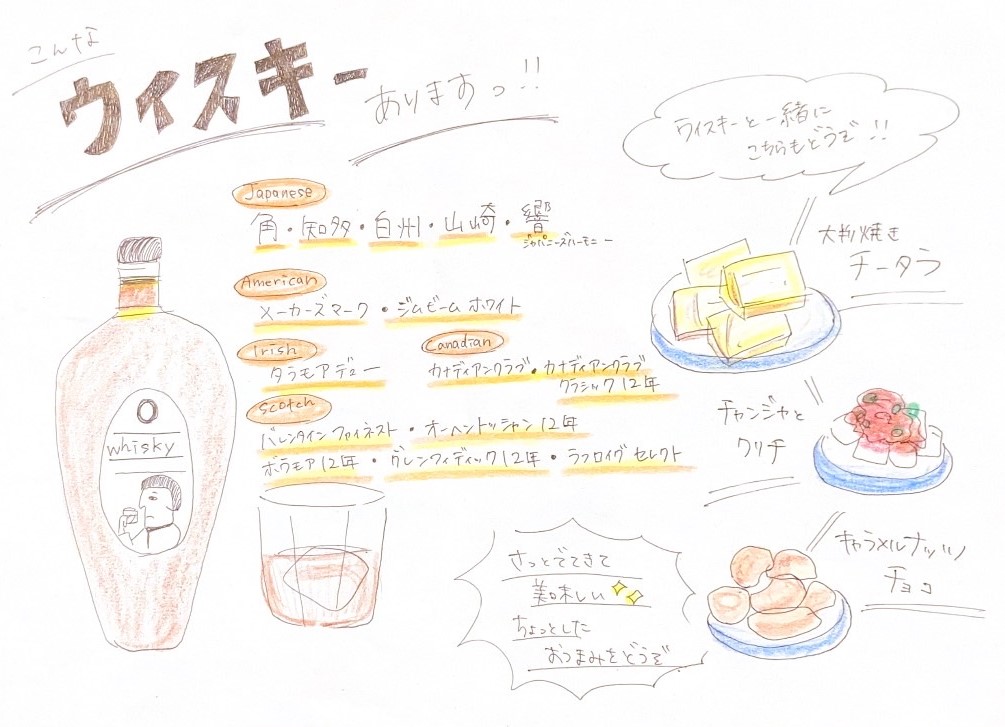 こんな
ウィスキー
ありますっ!!
ウィスキーと一緒に
こちらもどうぞ!!
Japanese
角・知多・白州・山崎・響
ジャパニーズハーモニー
American
メーカーズマーク・ジムビーム ホワイト
Irish
タラモアデュー
Canadian
カナディアンクラブ・カナディアンクラブ
クラシック12年
Scotch
バレンタイン ファイネスト・オーヘントッシャン12年
ボウモア12年・グレンフィディック12年・ラフロイグ セレクト
whisky
大判焼き
チータラ
チャンジャと
クリチ
キャラメルナッツ
チョコ
さっとでてきて
美味しい
ちょっとした
おつまみをどうぞ